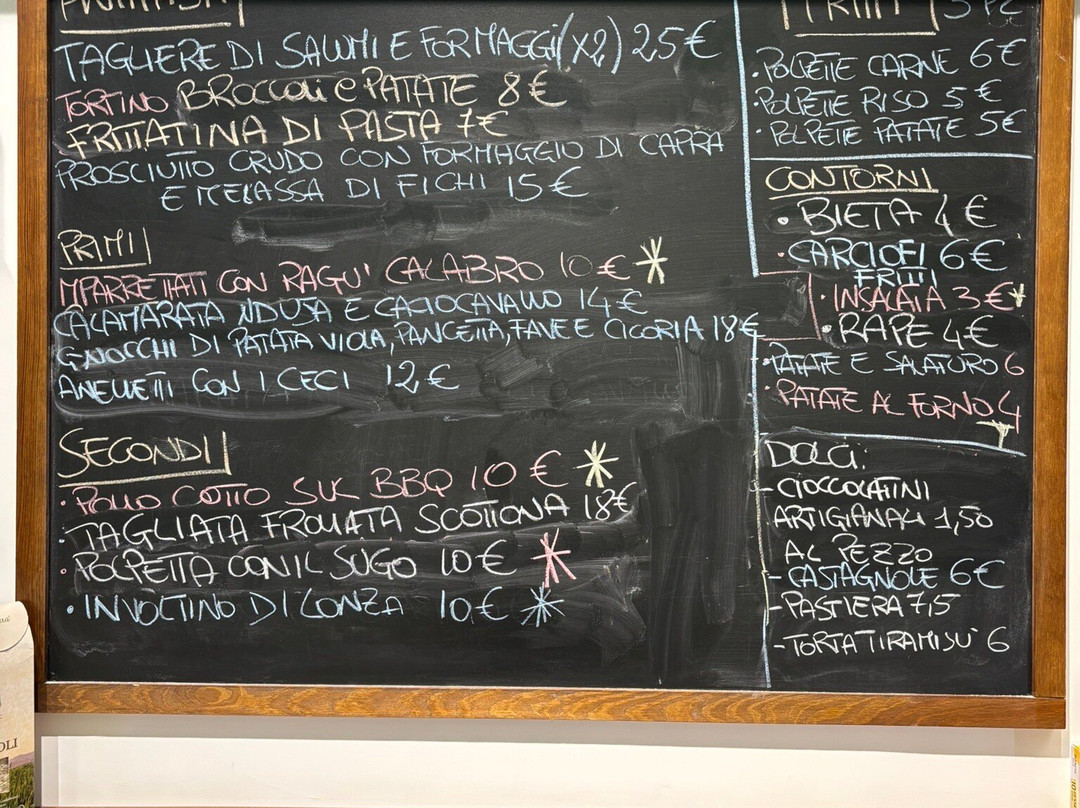 TAGLIERE DI SALUMI E FORMAGGI (X2) 25€
TORTINO BROCCOLI e PATATE 8€
FRITTATINA DI PASTA 7€
PROSCIUTTO CRUDO CON FORMAGGIO DI CAPRA
E MELASSA DI FICHI 15€
PRIMI
MPARRETTATI CON RAGU' CALABRO 10€ *
CALAMARATA NDUJA E CACIOCAVALLO 14€
GNOCCHI DI PATATA VIOLA, PANCETTA, FAVE E CICORIA 18€
ANELLETTI CON I CECI 12€
SECONDI
• POLLO COTTO SUL BBQ 10€ *
• TAGLIATA FROLLATA SCOTTONA 18€
• POLPETTA CON IL SUGO 10€ *
• INVOLTINO DI LONZA 10€ *
FRITTI 3 PZ
• POLPETTE CARNE 6€
• POLPETTE RISO 5€
• POLPETTE PATATE 5€
CONTORNI
• BIETA 4€
• CARCIOFI 6€
FRITTI
• INSALATA 3€ *
• RAPE 4€
• PATATE E SALATURO 6
• PATATE AL FORNO 4
DOLCI:
- CIOCCOLATINI
ARTIGIANALI 1,50
AL PEZZO
- CASTAGNOLE 6€
- PASTIERA 7,5
- TORTA TIRAMISU' 6
OLI